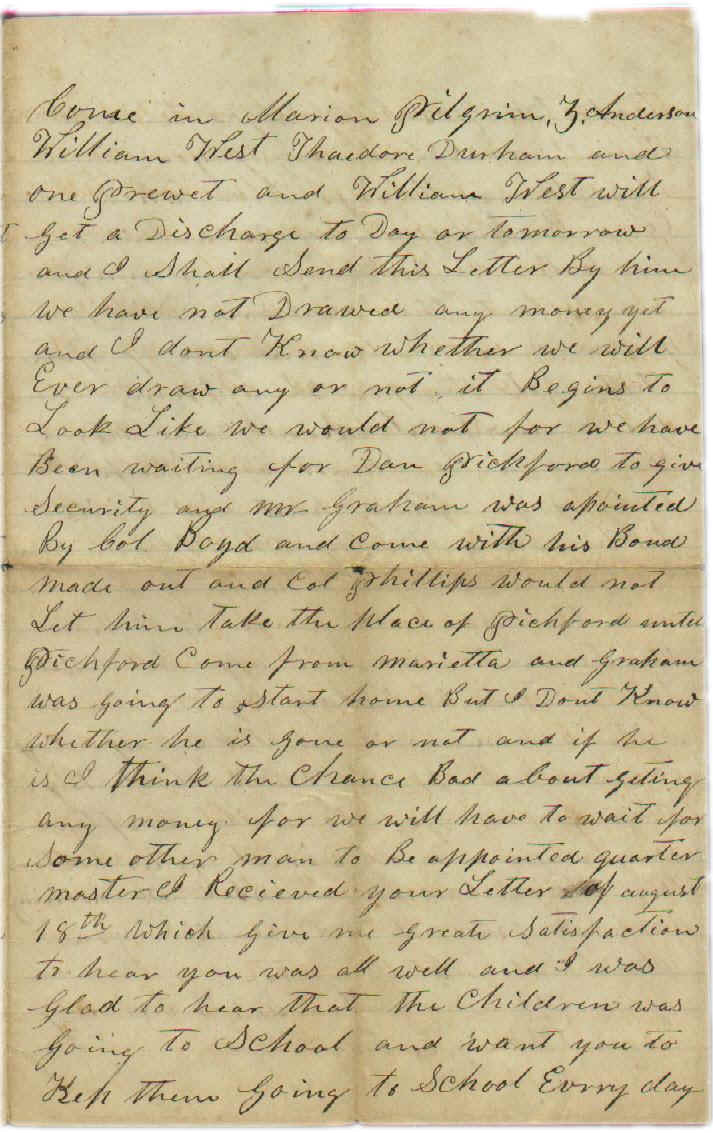 Come in Marion Pilgrim, Z. Anderson
William West Thaedore Durham and
one Prewet and William West will
Get a Discharge to Day or tomorrow
and I Shall Send this Letter By him
we have not Drawed any money yet
and I dont Know whether we will
Ever draw any or not, it Begins to
Look Like we would not for we have
Been waiting for Dan Pickford to give
Security and mr Graham was apointed
By Col Boyd and come with his Bond
made out and Col Phillips would not
Let him take the place of Pichford until
Pichford Come from marietta and Graham
was going to start home But I Dont Know
whether he is gone or not and if he
is I think the Chance Bad about geting
any money for we will have to wait for
some other man to Be appointed quarter
master I Recieved your Letter of august
18th Which give me greate Satisfaction
to hear you was all well and I was
Glad to hear that the Children was
Going to School and want you to
Kep them Going to School Evrry day